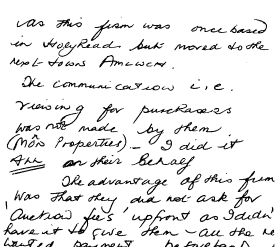 as this firm was once based
in Holyhead but moved to the
next town Amlwch.
The communication i.e.
viewing for purchasers
was not made by them
(Môn Properties) - I did it
All on their behalf
The advantage of this firm
was that they did not ask for
'Auction fees' upfront as I didn't
have it to give them - all the
wanted payment